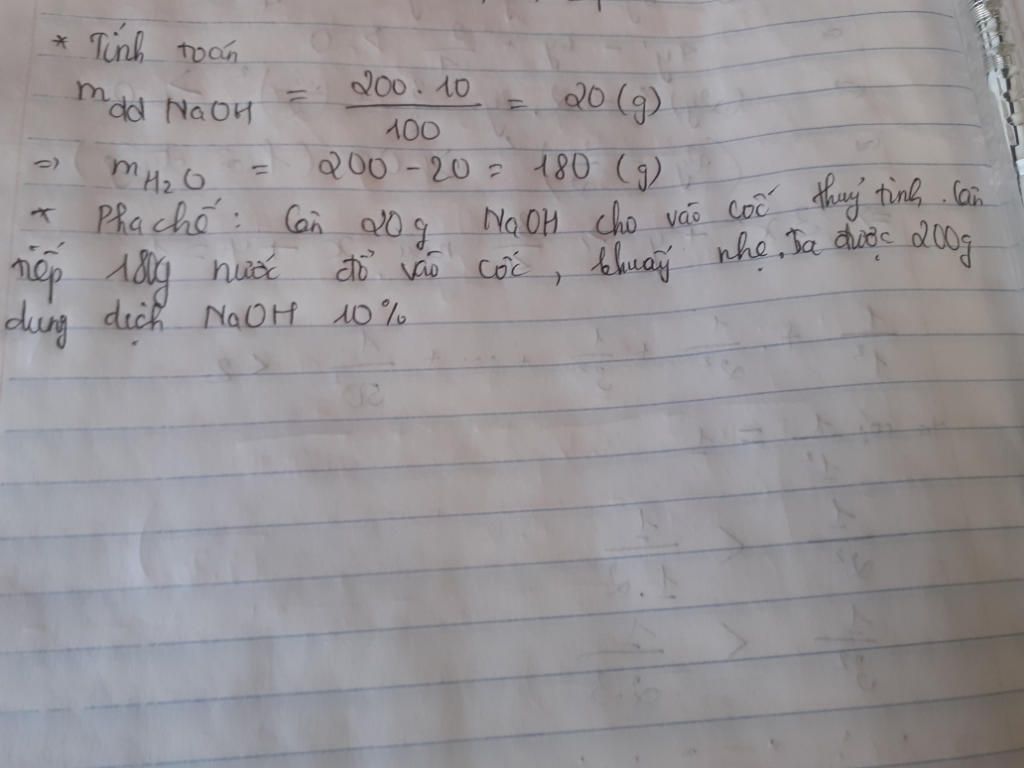 * Tính toán
m dd NaOH = 200 . 10 / 100 = 20 (g)
=> m H2O = 200 - 20 = 180 (g)
* Pha chế : Cân 20g NaOH cho vào cốc thuỷ tinh. Cân
tiếp 180g nước đổ vào cốc, khuấy nhẹ. Ta được 200g
dung dịch NaOH 10%